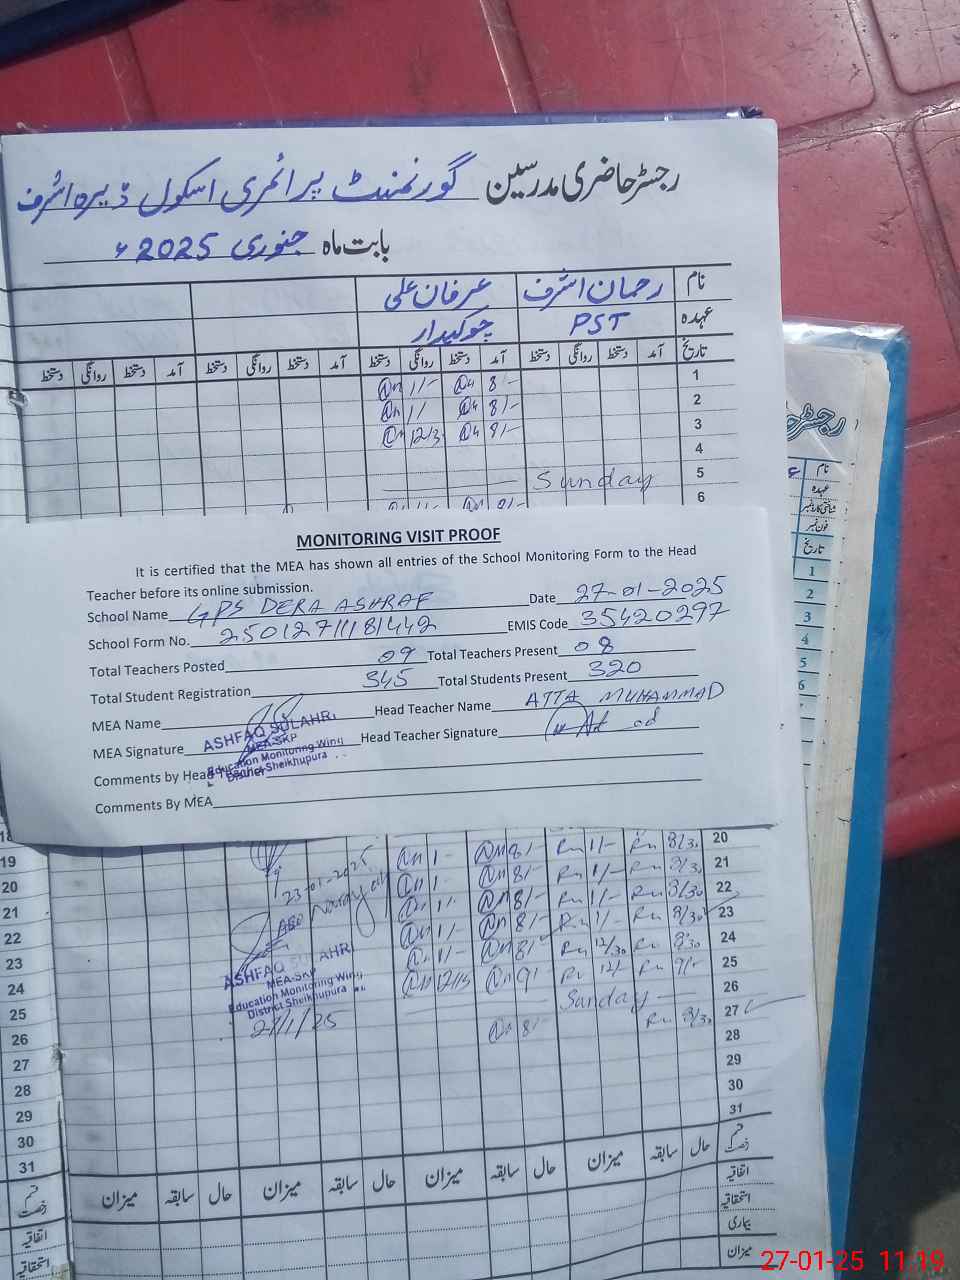 رجسٹر حاضری مدرسین گورنمنٹ پرائمری اسکول ڈیرہ اشرف
بابت ماہ جنوری 2025ء
نام رحمان اشرف عرفان علی
عہدہ PST چوکیدار
تاریخ آمد دستخط روانگی دستخط آمد دستخط روانگی دستخط آمد دستخط روانگی دستخط آمد دستخط روانگی دستخط
1 8/- 11/-
2 8/- 11/
3 8/- 12/3
4
5 Sunday
6
رجسٹر حا
نام
عہدہ
شناختی کارڈ نمبر
فون نمبر
تاریخ
1
2
3
4
5
6
MONITORING VISIT PROOF
It is certified that the MEA has shown all entries of the School Monitoring Form to the Head
Teacher before its online submission.
School Name GPS DERA ASHRAF Date 27-01-2025
School Form No. EMIS Code 35420297
Total Teachers Posted 09 Total Teachers Present 08
Total Student Registration 345 Total Students Present 320
MEA Name Head Teacher Name ATTA MUHAMMAD
MEA Signature Head Teacher Signature
ASHFAQ SULAHRI
MEA-SKP
Education Monitoring Wing
District Sheikhupura
Comments by Head Teacher
Comments By MEA
18
19 1/- 8/- 1/- 8/30 20
20 1/- 8/- 1/- 8/30 21
21 1/- 8/- 1/- 8/30 22
22 1/- 8/- 1/- 8/30 23
23 1/- 8/- 12/30 8/30 24
24 12/15 9/- 12/- 9/- 25
25 Sunday 26
26 8/- 8/30 27
27 28
28 29
29 30
30 31
31
23-01-2025
ASHFAQ SULAHRI
MEA-SKP
Education Monitoring Wing
District Sheikhupura
27/1/25
قسم رخصت حال سابقہ میزان حال سابقہ میزان حال سابقہ میزان حال سابقہ میزان قسم رخصت
اتفاقیہ اتفاقیہ
استحقاقیہ استحقاقیہ
بیماری
میزان
27-01-25 11:19